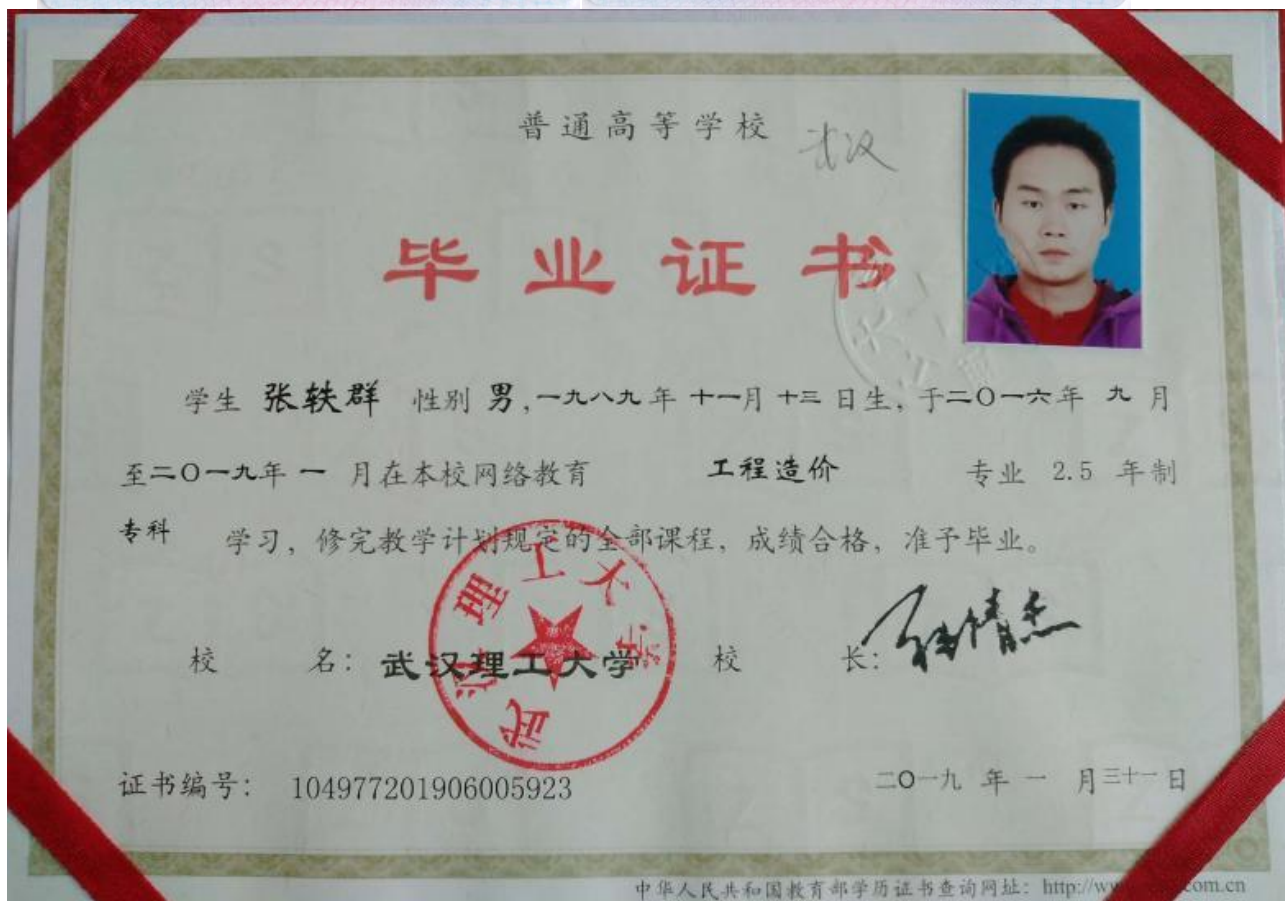 普通高等学校
武汉
毕业证书
学生 张轶群 性别 男,一九八九年 十一月 十三 日生,于二〇一六年 九 月
至二〇一九年 一 月在本校网络教育 工程造价 专业 2.5 年制
专科 学习,修完教学计划规定的全部课程,成绩合格,准予毕业。
武汉理工大学
校 名:武汉理工大学 校 长:
证书编号: 104977201906005923 二〇一九 年 一 月三十一日
中华人民共和国教育部学历证书查询网址: http://ww com.cn